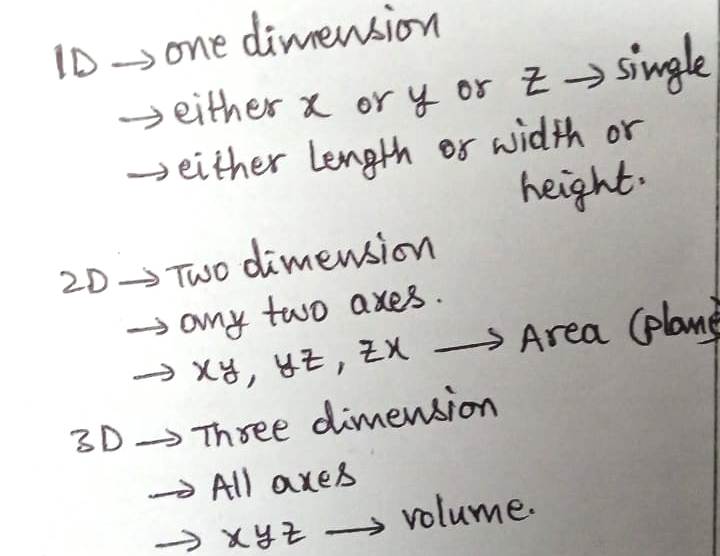 1D → one dimension
→ either x or y or z → single
→ either length or width or
height.
2D → Two dimension
→ any two axes.
→ xy, yz, zx → Area (plane)
3D → Three dimension
→ All axes
→ xyz → volume.